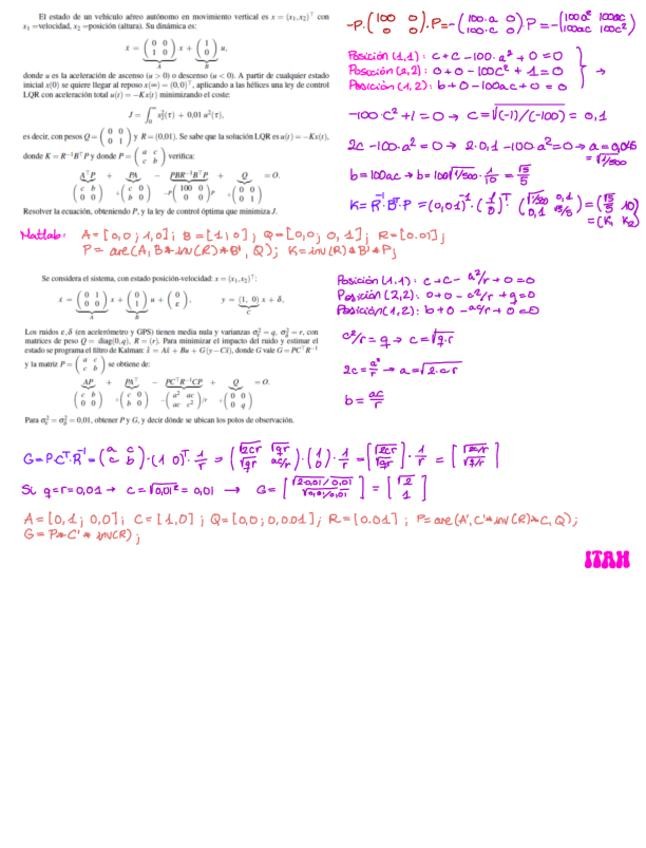 El estado de un vehículo aéreo autónomo en movimiento vertical es x = (x₁,x₂)⊤ con
x₁ =velocidad, x₂ =posición (altura). Su dinámica es:
ẋ = ( 0 0 ; 1 0 ) x + ( 1 ; 0 ) u,
A B
donde u es la aceleración de ascenso (u > 0) o descenso (u < 0). A partir de cualquier estado
inicial x(0) se quiere llegar al reposo x(∞) = (0,0)⊤, aplicando a las hélices una ley de control
LQR con aceleración total u(t) = −Kx(t) minimizando el coste:
J = ∫₀^∞ x₂²(τ) + 0,01 u²(τ),
es decir, con pesos Q = ( 0 0 ; 0 1 ) y R = (0,01). Se sabe que la solución LQR es u(t) = −Kx(t),
donde K = R⁻¹B⊤P y donde P = ( a c ; c b ) verifica:
A⊤P + PA − PBR⁻¹B⊤P + Q = 0.
( c b ; 0 0 ) +( c 0 ; b 0 ) −P( 100 0 ; 0 0 )P +( 0 0 ; 0 1 )
Resolver la ecuación, obteniendo P, y la ley de control óptima que minimiza J.
-P·(100 0 ; 0 0)·P=-(100·a 0 ; 100·c 0)P=-(100a² 100ac ; 100ac 100c²)
Posición (1,1): c+c-100·a²+0=0
Posición (2,2): 0+0-100c²+1=0 →
Posición (1,2): b+0-100ac+0=0
-100·c²+1=0 → c=√(-1)/(-100) = 0,1
2c-100·a²=0 → 2·0,1-100a²=0 → a=0,045
=√1/500
b=100ac → b=100√1/500·1/10=√5/5
K=R⁻¹·Bᵀ·P=(0,01)⁻¹·(1 ; 0)ᵀ·(√1/500 0,1 ; 0,1 √5/5)=(√5/5 10)
=(K₁ K₂)
Matlab: A=[0,0;1,0]; B=[1;0]; Q=[0,0;0,1]; R=[0.01];
P=are(A,B*inv(R)*B',Q); K=inv(R)*B'*P;
Se considera el sistema, con estado posición-velocidad: x = (x₁,x₂)⊤:
ẋ = ( 0 1 ; 0 0 ) x + ( 0 ; 1 ) u + ( 0 ; ε ), y = (1, 0) x + δ,
A B C
Los ruidos ε,δ (en acelerómetro y GPS) tienen media nula y varianzas σ²ε = q, σ²δ = r, con
matrices de peso Q = diag(0,q), R = (r). Para minimizar el impacto del ruido y estimar el
estado se programa el filtro de Kalman: x̂ = Ax̂ + Bu + G(y−Cx̂), donde G vale G = PC⊤R⁻¹
y la matriz P = ( a c ; c b ) se obtiene de:
AP + PA⊤ − PC⊤R⁻¹CP + Q = 0.
( c b ; 0 0 ) +( c 0 ; b 0 ) −( a² ac ; ac c² )/r +( 0 0 ; 0 q )
Para σ²ε = σ²δ = 0,01, obtener P y G, y decir dónde se ubican los polos de observación.
Posición (1,1): c+c-a²/r+0=0
Posición (2,2): 0+0-c²/r+q=0
Posición (1,2): b+0-ac/r+0=0
c²/r=q → c=√q·r
2c=a²/r → a=√2·c·r
b=ac/r
G=P·Cᵀ·R⁻¹=(a c ; c b)·(1 0)ᵀ·1/r=(√2cr √qr ; √qr ac/r)·(1 ; 0)·1/r=[√2cr ; √qr]·1/r=[√2c/r ; √q/r]
Si q=r=0,01 → c=√0,01²=0,01 → G=[√2·0,01/0,01 ; √0,01/0,01]=[√2 ; 1]
A=[0,1;0,0]; C=[1,0]; Q=[0,0;0,0.01]; R=[0.01]; P=are(A',C'*inv(R)*C,Q);
G=P*C'*inv(R);
ITAH